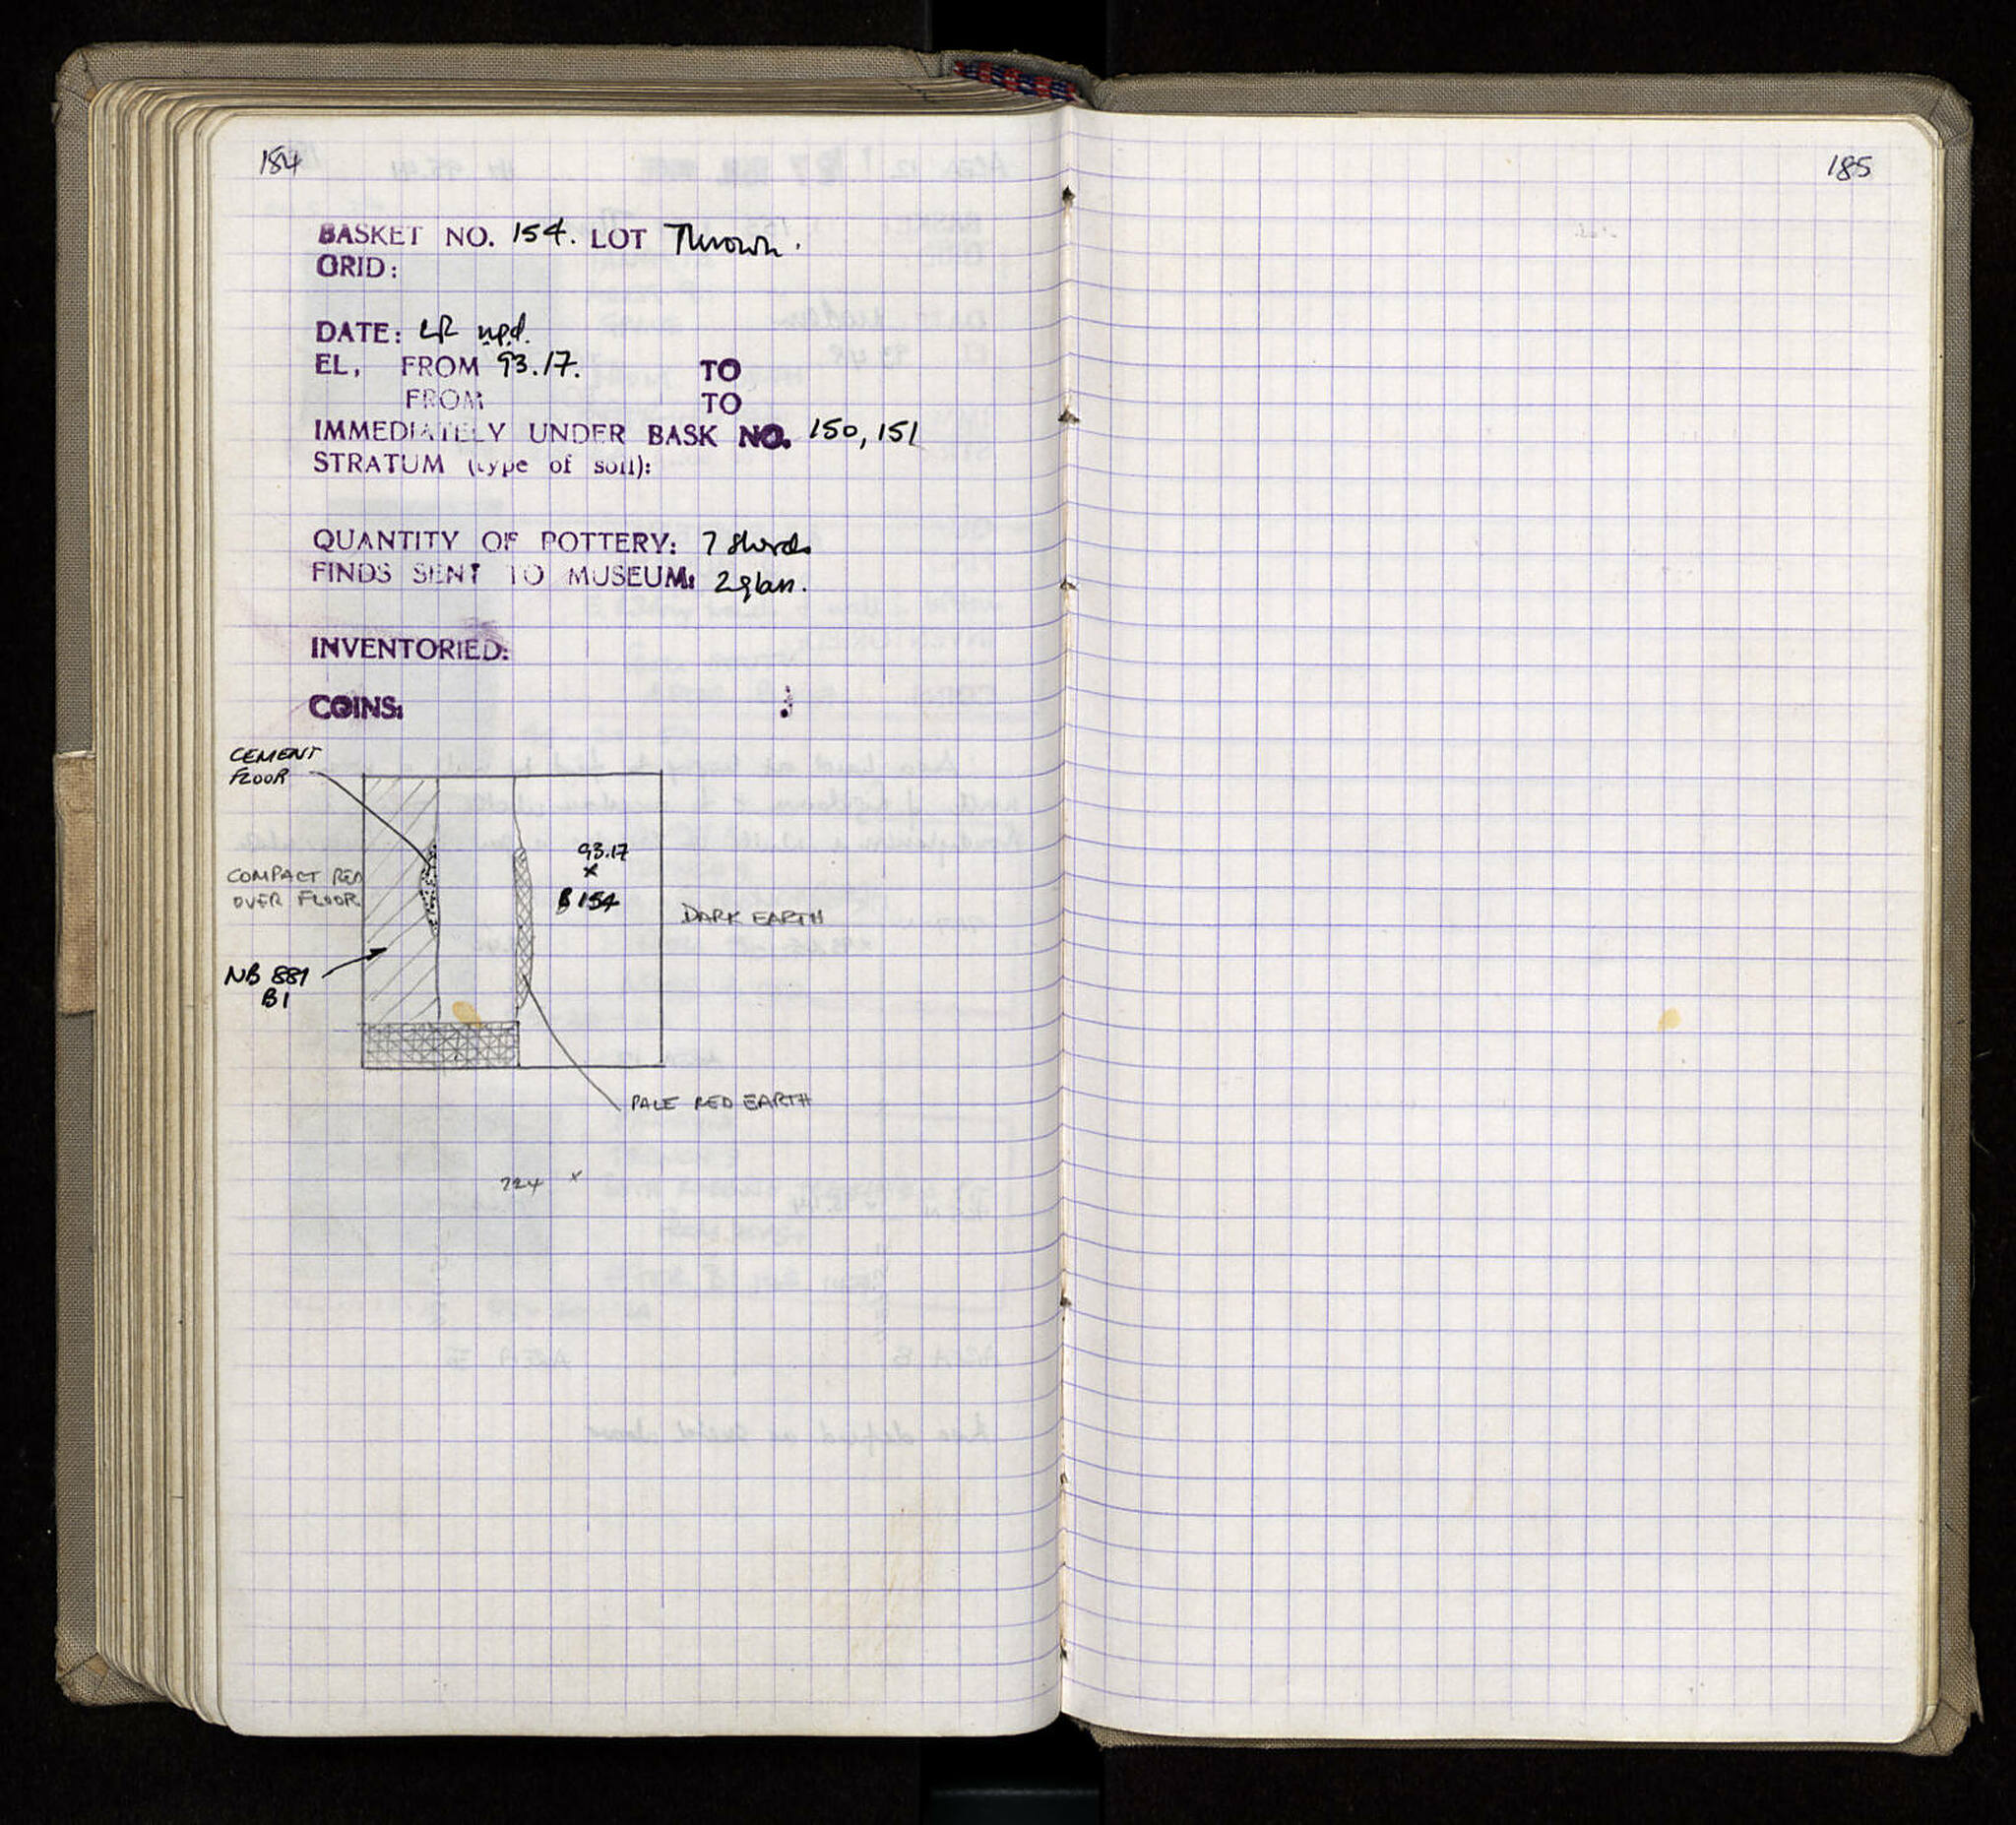 184
BASKET NO. 154. LOT Thrown.
GRID:
DATE: LR npd.
EL, FROM 93.17. TO
FROM TO
IMMEDIATELY UNDER BASK NO. 150, 151
STRATUM (type of soil):
QUANTITY OF POTTERY: 7 sherds
FINDS SENT TO MUSEUM: 2 glass.
INVENTORIED:
COINS:
CEMENT
FLOOR
93.17
x
B 154
COMPACT RED
OVER FLOOR
DARK EARTH
NB 881
B1
PALE RED EARTH
224 x
185